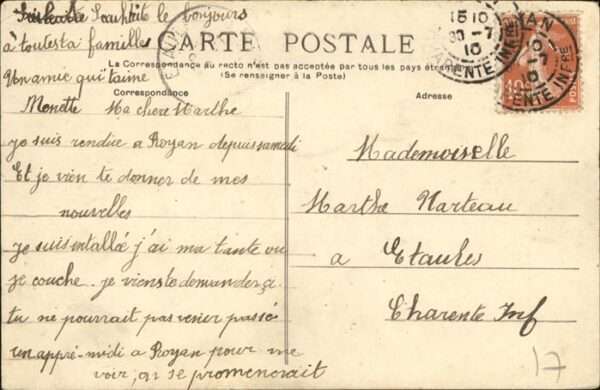 Souhaite le bonjours
à toutesta familles
Un amie qui t'aime
CARTE POSTALE
La Correspondance au recto n'est pas acceptée par tous les pays étrangers
(Se renseigner à la Poste)
Correspondance
Adresse
Monette Ma chere Marthe
Je suis rendue a Royan depuis samedi
Et je vien te donner de mes
nouvelles
Je suis intallée j'ai ma tante ou
je couche. je vienste demander ça
tu ne pourrait pas venir passé
un appré-midi a Royan pour me
voir, on se promenerait
Mademoiselle
Marthe Marteau
a Etaules
Charente Inf
17
15 10
30-7
10
ROYAN
CHARENTE INFRE
10
POSTES